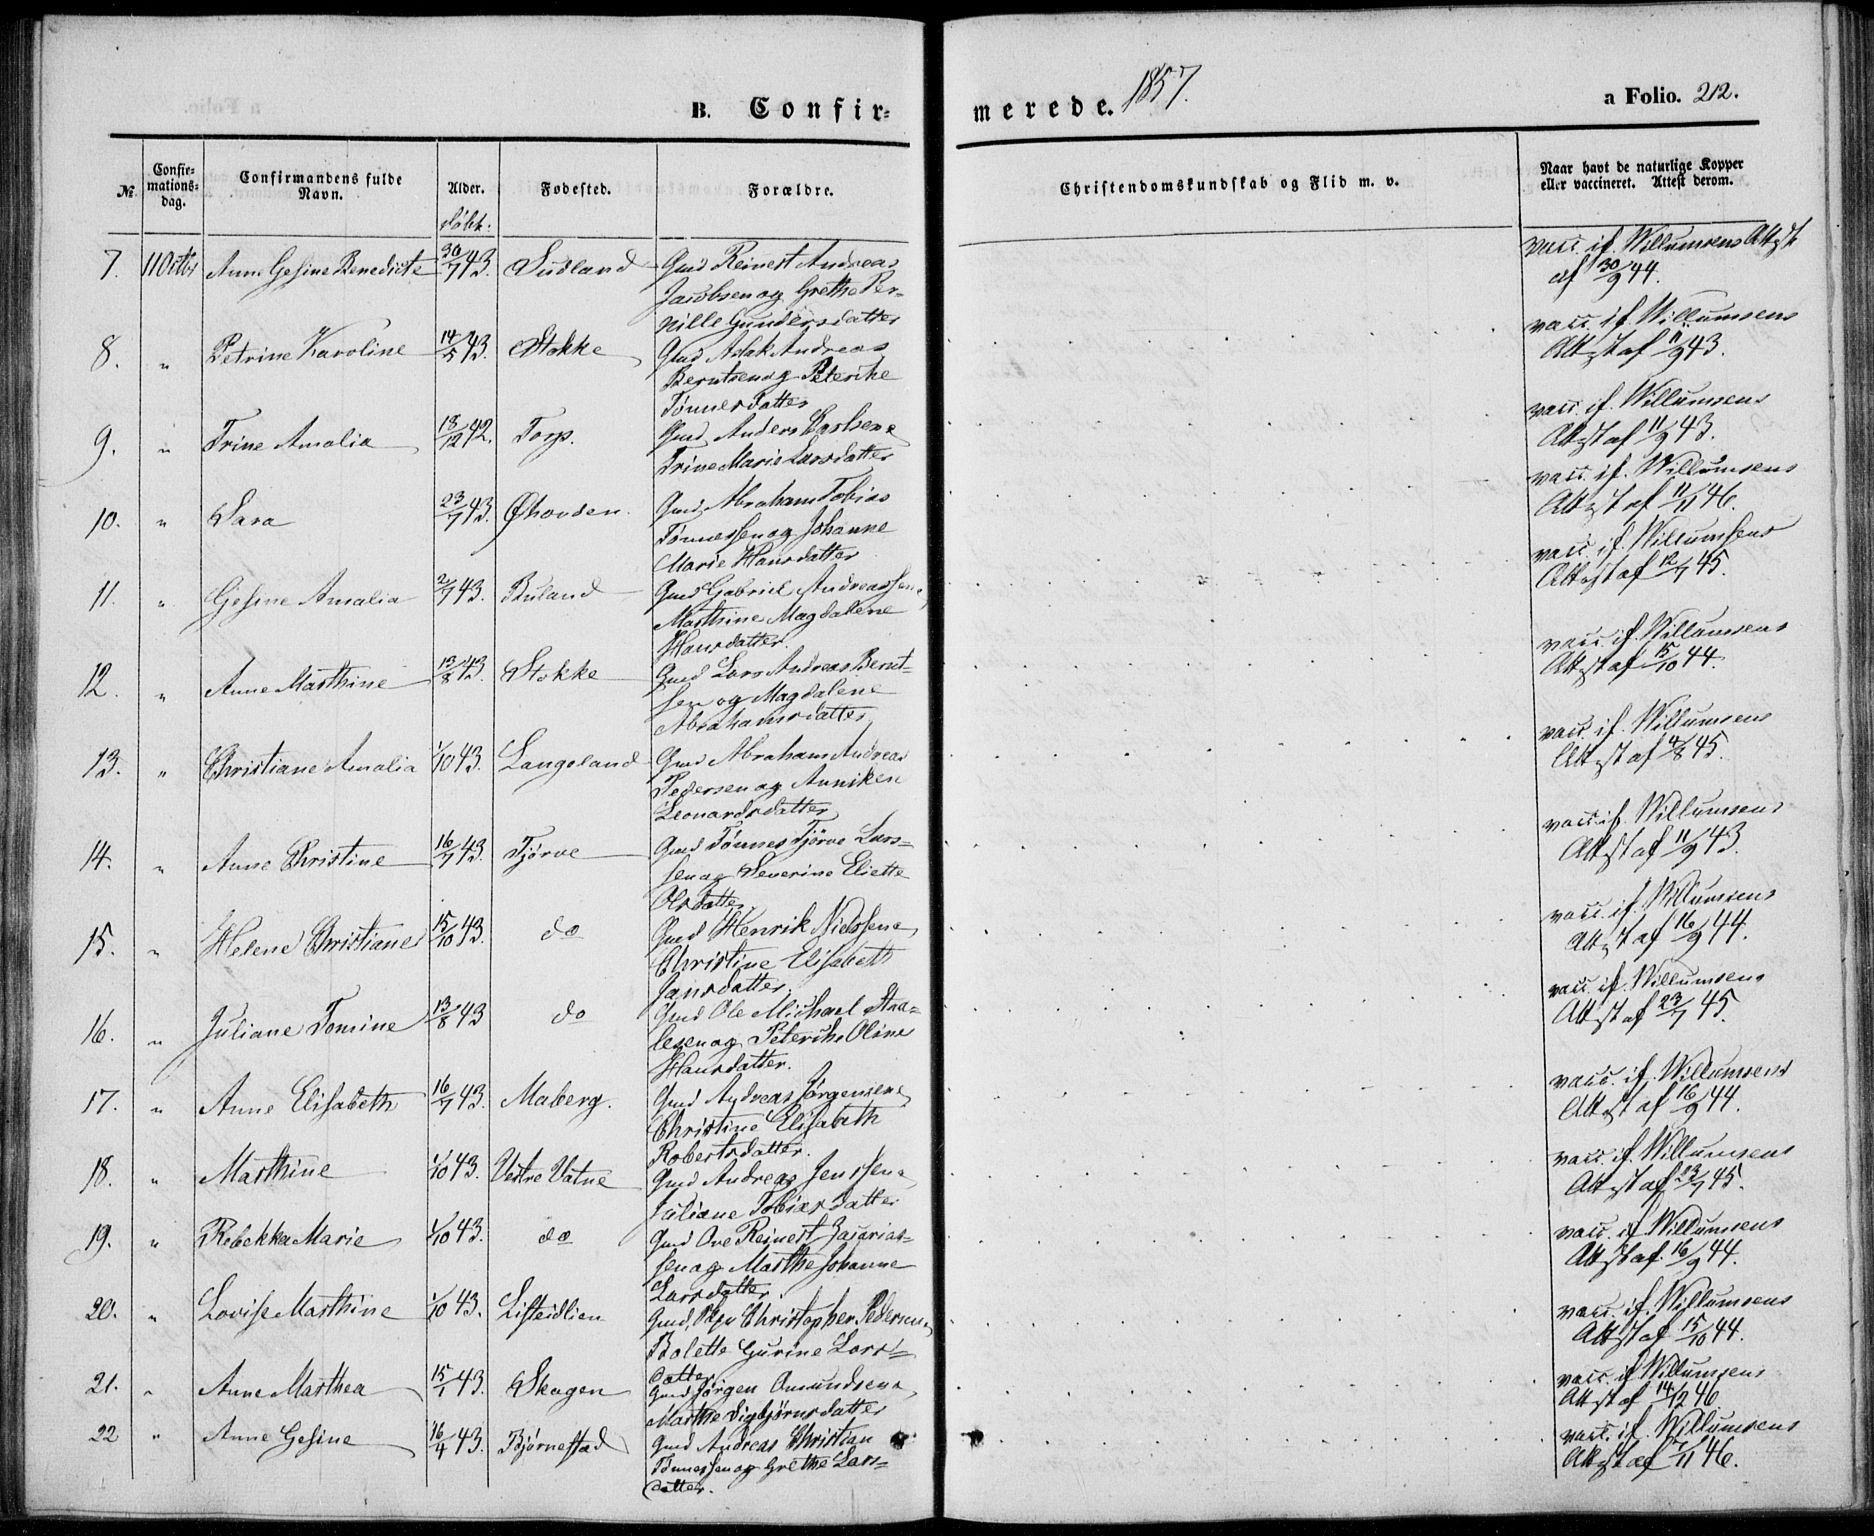 B. Confir-
merede. 1857.
a Folio. 212.
№
Confir-
mations-
dag.
Confirmandens fulde
Navn.
Alder.
døbt.
Fødested.
Forældre.
Christendomskundskab og Flid m. v.
Naar havt de naturlige Kopper
eller vaccineret. Attest derom.
7. 11 Octbr Anne Gesine Benedicte 30/7 43. Sudland Gmd Reinert Andreas
Jacobsen og Grethe Per-
nille Gundersdatter
vacc. if. Willumsens Attest
af 30/9 44.
8. " Petrine Karoline 14/5 43. Stokke Gmd Aslak Andreas
Berntsen og Peterike
Tønnesdatter
vacc. if. Willumsens
Attst af 11/9 43.
9. " Trine Amalia 18/12 42. Torp. Gmd Anders Carlsen
Trine Marie Larsdatter
vacc. if. Willumsens
Attst af 11/9 43.
10. " Sara 23/7 43. Øhovden. Gmd Abraham Tobias
Tønnessen og Johanne
Marie Hansdatter
vacc. if. Willumsens
Attst af 11/11 46.
11. " Gesine Amalia 2/7 43. Buland Gmd Gabriel Andreassen
Marthine Magdalene
Hansdatter
vacc. if. Willumsens
Attest af 12/7 45.
12. " Anne Marthine 13/8 43. Stokke Gmd Lars Andreas Bernt-
sen og Magdalene
Abrahamsdatter
vacc. if. Willumsens
Attst af 15/10 44.
13. " Christiane Amalia 1/10 43. Langeland Gmd Abraham Andreas
Pedersen og Anniken
Leonardsdatter
vacc. if. Willumsens
Attst af 4/8 45.
14. " Anne Christine 16/7 43. Tjørve Gmd Tønnes Tjørve Lars-
sen og Severine Eliette
Olsdatter
vacc. if. Willumsens
Attst af 11/9 43.
15. " Helene Christiane 15/10 43. do Gmd Henrik Nielssen
Christine Elisabeth
Jansdatter.
vacc. if. Willumsens
Attst af 16/9 44.
16. " Juliane Tomine 13/8 43 do Gmd Ole Michael
og Peterike Oline
Hansdatter.
vacc. if. Willumsens
Attst af 23/7 45.
17. " Anne Elisabeth 16/7 43. Maberg. Gmd Andreas Jørgensen
Christine Elisabeth
Robertsdatter.
vacc. if. Willumsens
Attst af 16/9 44.
18. " Marthine 1/10 43. Vestre Vatne Gmd Andreas Jenssen
Juliane Tobiasdatter
vacc. if. Willumsens
Attst af 23/7 45.
19. " Rebekka Marie 1/10 43. do Gmd Ove Reinert Zacarias-
sen og Marthe Johanne
Larsdatter.
vacc. if. Willumsens
Attst af 16/9 44.
20. " Lovise Marthine 1/10 43. Listeidlien Gmd, Christopher Pedersen
Bolette Gurine Lars-
datter
vacc. if. Willumsens
Attst af 15/10 44.
21. " Anne Marthea 15/1 43. Skagen Gmd Jørgen Omundsen
Marthe Sigbjørnsdatter
vacc. if Willumsens
Attst af 14/12 46.
22 " Anne Gesine 16/4 43. Bjørnestad Gmd Andreas Christian
Tønnessen og Grethe Lars-
datter.
vacc. if. Willumsens
Attst af 7/11 46.